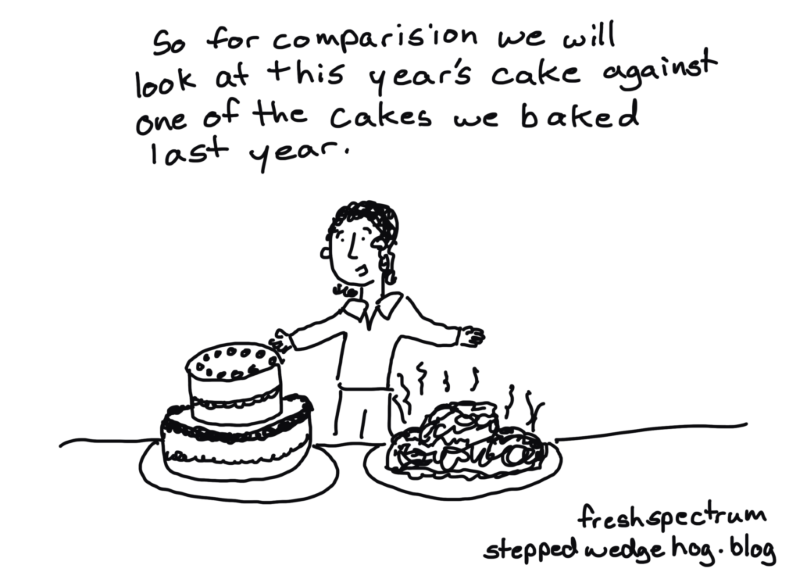 So for comparision we will
look at this year's cake against
one of the cakes we baked
last year.
freshspectrum
steppedwedgehog.blog